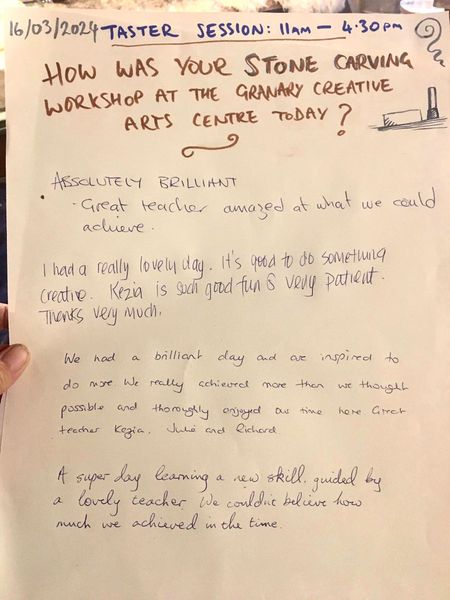 16/03/2024 TASTER SESSION: 11AM - 4:30PM
HOW WAS YOUR STONE CARVING
WORKSHOP AT THE GRANARY CREATIVE
ARTS CENTRE TODAY?
ABSOLUTELY BRILLIANT
· Great teacher amazed at what we could
achieve.
I had a really lovely day. It's good to do something
creative. Kezia is such good fun & very patient.
Thanks very much.
We had a brilliant day and are inspired to
do more We really achieved more than we thought
possible and thoroughly enjoyed our time here Great
teacher Kezia. Julie and Richard
A super day learning a new skill, guided by
a lovely teacher We couldn't believe how
much we achieved in the time.